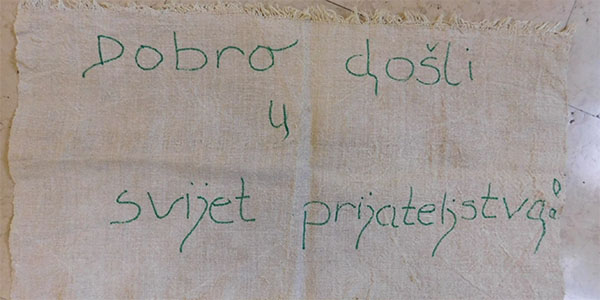 Dobro došli
u
svijet prijateljstva!